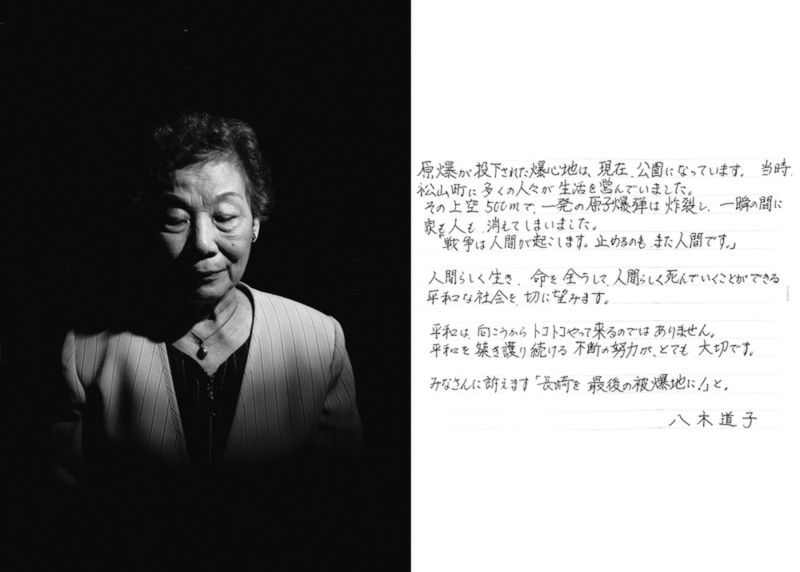 原爆が投下された爆心地は、現在、公園になっています。 当時、
松山町に多くの人々が生活を営んでいました。
その上空500mで、一発の原子爆弾は炸裂し、一瞬の間に
家も人も消してしまいました。
"戦争は人間が起こします。止めるのも、また人間です。」
人間らしく生き、命を全うして、人間らしく死んでいくことができる
平和な社会を、切に望みます。
平和は、向こうからトコトコやって来るのではありません。
平和を築き護り続ける不断の努力が、とても大切です。
みなさんに訴えます「長崎を最後の被爆地に!」と。
八木道子